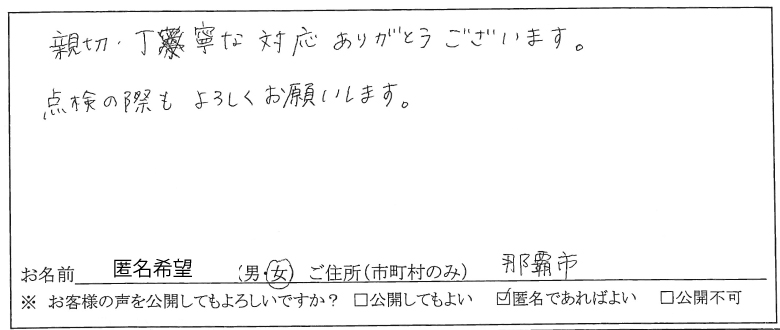 親切・丁寧な対応ありがとうございます。
点検の際もよろしくお願いします。
お名前 匿名希望 (男・女) ご住所(市町村のみ) 那覇市
※ お客様の声を公開してもよろしいですか? □公開してもよい ☑匿名であればよい □公開不可